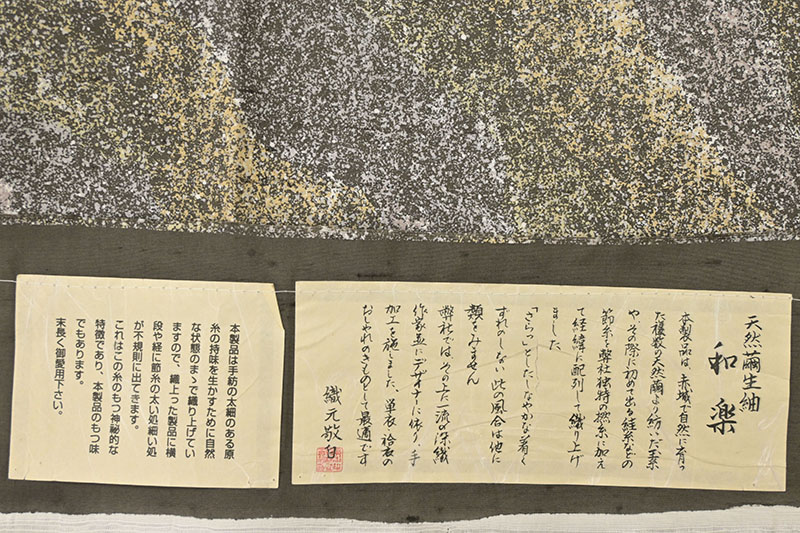 天然繭生紬
和楽
本製品は、赤城で自然に育っ
た複数の天然繭より紡いだ玉糸
や、その際に初めて出る経糸などの
節糸を弊社独特の撚糸に加え
て経緯に配列して織り上げ
ました
「さらっ」としたしなやかな着く
ずれのしない此の風合は他に
類をみません
弊社では、その上一流の染織
作家並にデザイナーに依り、手
加工を施しました、単衣 袷衣の
おしゃれのきものとして最適です
織元敬白
本製品は手紡の太細のある原
糸の持味を生かすために自然
な状態のまゝで織り上げてい
ますので、織上った製品に横
段や経に節糸の太い処細い処
が不規則に出てきます。
これはこの糸のもつ神秘的な
特徴であり、本製品のもつ味
でもあります。
末長く御愛用下さい。